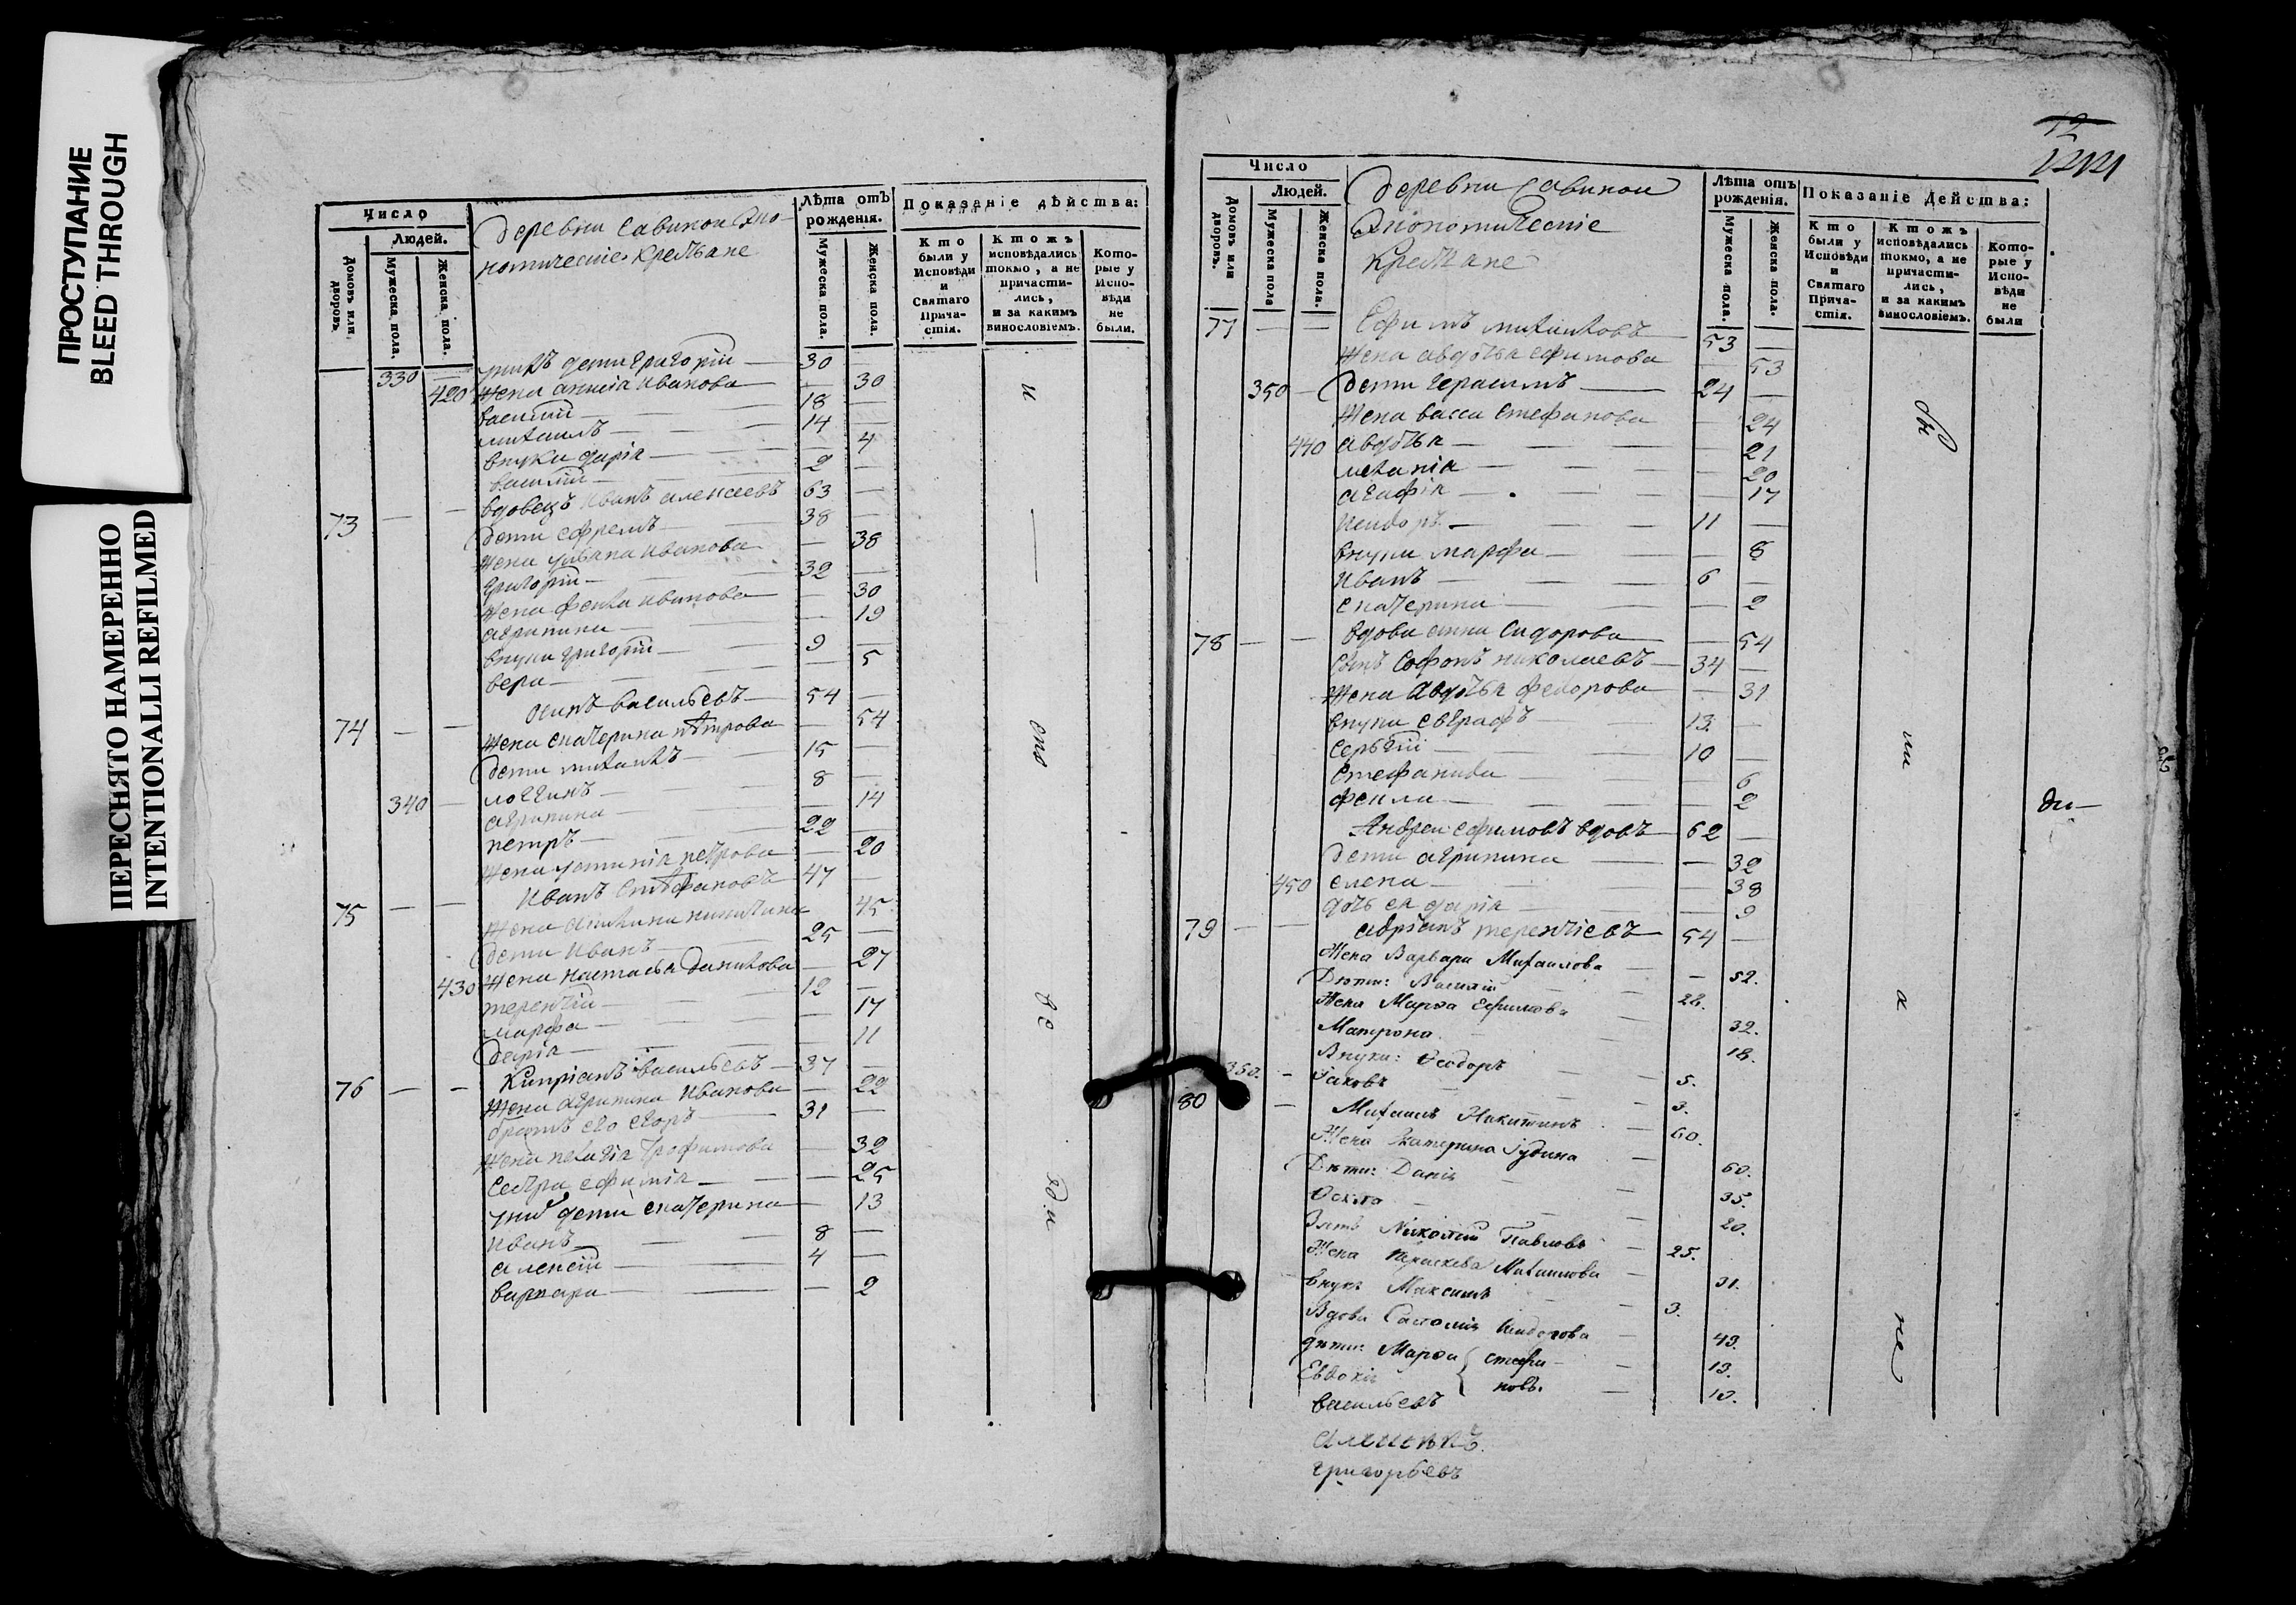 ПРОСТУПАНИЕ
BLEED THROUGH
ПЕРЕСНЯТО НАМЕРЕННО
INTENTIONALLI REFILMED
Число
Людей.
Домовъ или дворовъ.
Мужеска пола.
Женска пола.
деревни Савиной Эко-
номическіе Крестьяне
Лѣта отъ рождения.
Мужеска пола.
Женска пола.
Показаніе дѣйства:
Кто были у Исповѣди и Святаго Прича-стія.
Ктожъ исповѣдались токмо, а не причасти-лись, и за какимъ винословіемъ.
Кото-рые у Испо-вѣди не были.
330 — дети Григорій — 30 —
420 жена анисіа иванова — 30
василій — 18 —
михаилъ — 14 —
внуки дарія — 4
василій — 2 —
73 — — вдовецъ иванъ алексеевъ 63 —
дети ефремъ — 38 —
жена ульяна иванова — 38
григорій — 32 —
жена фекла иванова — 30
агрипина — 19
внуки григорій — 9 —
вера — 5
74 — — осипъ васильевъ 54 —
жена екатерина петрова — 54
дети михаилъ — 15 —
340 — логгинъ — 8 —
агрипина — 14
петръ — 22 —
жена устинія петрова — 20
75 — — иванъ стефановъ 47 —
жена никитина 45
дети иванъ — 25 —
430 жена настасья данилова — 27
терентій — 12 —
марфа — 17
дарія — 11
76 — — Кипріанъ васильевъ 37 —
жена агрипина иванова — 22
братъ его егоръ — 31 —
жена пелагія трофимова — 32
сестра ефимія — 25
дети екатерина — 13
иванъ — 8 —
алексій — 4 —
варвара — 2
и
—
Число
Людей.
Домовъ или дворовъ.
Мужеска пола
Женска пола.
деревни Савиной
Экономическіе
Крестьяне
Лѣта отъ рождения.
Мужеска пола.
Женска пола.
Показаніе Действа:
Кто были у Исповѣди и Святаго Прича-стія.
Ктожъ исповѣдались токмо, а не причасти-лись, и за какимъ винословіемъ.
Кото-рые у Испо-вѣди не были
77 — — Ефимъ михайловъ 53 —
жена авдотья ефимова — 53
350 — дети герасимъ — 24 —
жена васса стефанова — 24
440 авдотья — 21
меланія — 20
агафія — 17
исидоръ — 11 —
внуки марфа — 8
иванъ — 6 —
екатерина — 2
78 — — вдова анна сидорова — 54
сынъ софонъ николаевъ 34 —
жена авдотья федорова — 31
внуки евграфъ 13 —
сергій — 10 —
стефанида — 6
фекла — 2
Андреи ефимовъ вдовъ 62 —
дети агрипина — 32
450 елена — 38
дочь ея дарія — 9
79 — — адріанъ терентіевъ 54 —
Жена Варвара Михаилова — 52.
Дѣти: Василій 28.
Жена Марѳа Ефимова 32.
Матрона 18.
Внуки: Ѳеодоръ 5.
360. — Іаковъ 3.
80 — Михаилъ Никитинъ 60.
Жена Екатерина Іудина 60.
Дѣти: 35.
20.
Зять Николай Павловъ 25.
Жена Параскева Михаилова 31.
внукъ Максимъ 3.
Вдова Исидорова 43.
дѣти: Марѳа { стефа- 13.
Евдокія { новы. 10.
ди—
не
васильевъ
григорьевъ